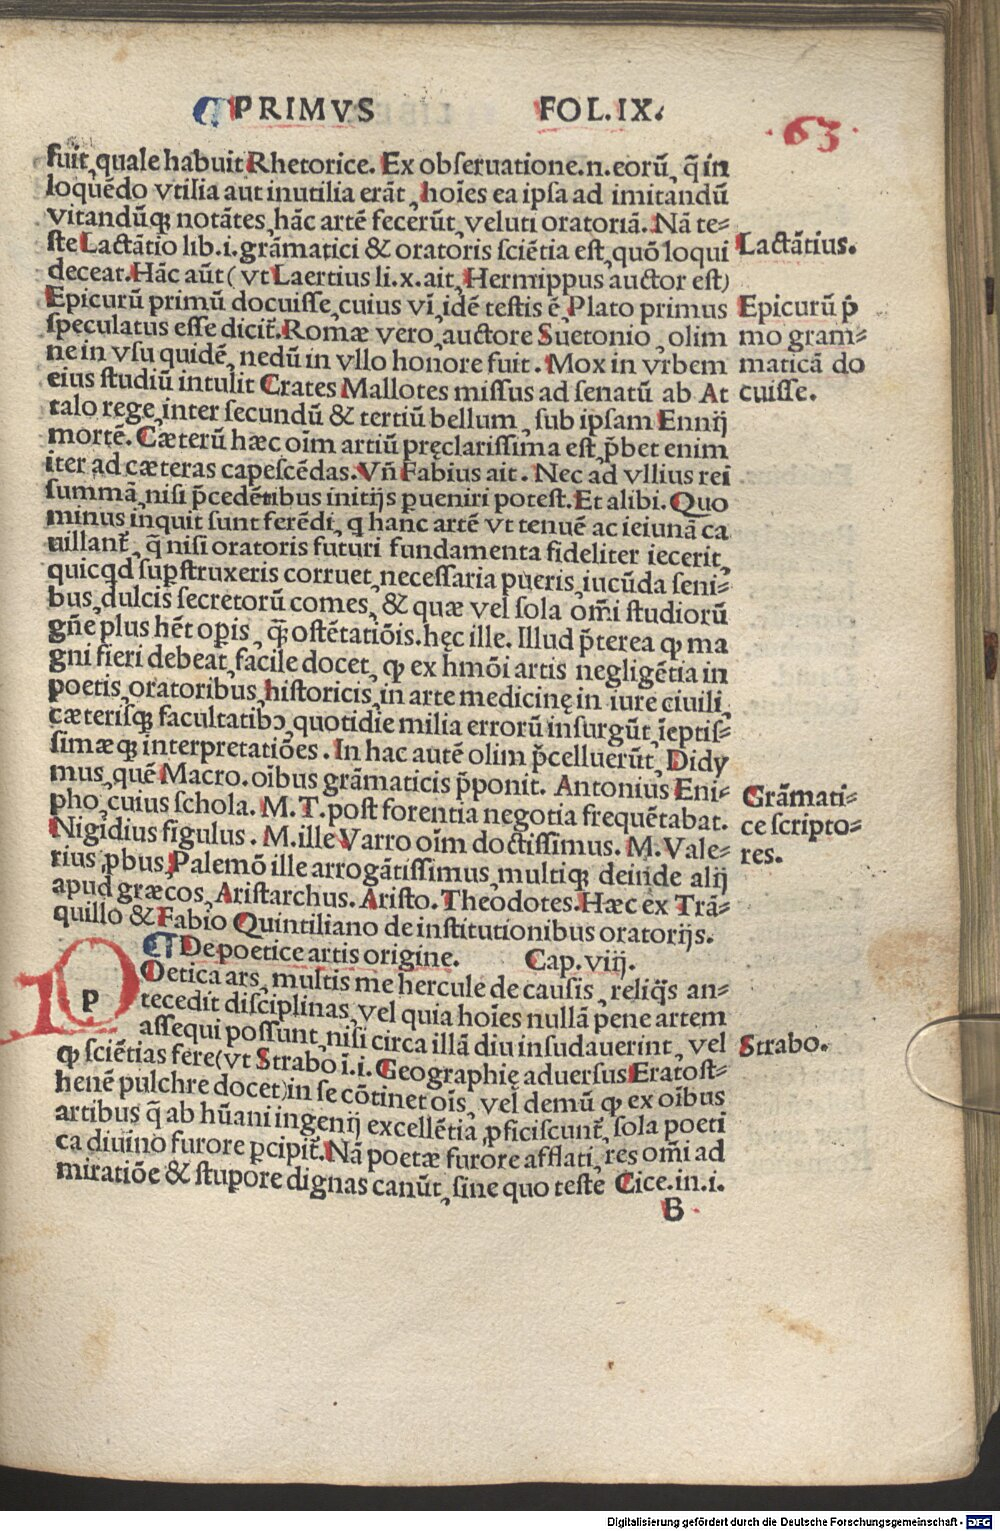 PRIMVS FOL.IX.
63
fuit, quale habuit Rhetorice. Ex obſeruatione.n.eorũ, q̃ in
loquẽdo vtilia aut inutilia erãt, hoĩes ea ipſa ad imitandũ
vitandũq; notãtes, hãc artẽ fecerũt, veluti oratoriã. Nã te⸗
ſte Lactãtio lib.i.grãmatici & oratoris ſciẽtia eſt, quõ loqui
deceat. Hãc aũt (vt Laertius li.x.ait, Hermippus auctor eſt)
Epicurũ primũ docuiſſe, cuius vĩ, idẽ teſtis ẽ, Plato primus
ſpeculatus eſſe dicit̃. Romæ vero, auctore Suetonio, olim
ne in vſu quidẽ, nedũ in vllo honore fuit. Mox in vrbem
eius ſtudiũ intulit Crates Mallotes miſſus ad ſenatũ ab At
talo rege, inter ſecundũ & tertiũ bellum, ſub ipſam Ennij
mortẽ. Cæterũ hæc oĩm artiũ pręclariſſima eſt, p̃bet enim
iter ad cæteras capeſcẽdas. Vñ Fabius ait. Nec ad vllius rei
ſummã, niſi p̃cedẽtibus initijs ꝑueniri poteſt. Et alibi. Quo
minus inquit ſunt ferẽdi, q hanc artẽ vt tenuẽ ac ieiunã ca
uillant̃, q̃ niſi oratoris futuri fundamenta fideliter iecerit,
quicqd ſuꝑſtruxeris corruet, neceſſaria pueris, iucũda ſeni⸗
bus, dulcis ſecretorũ comes, & quæ vel ſola om̃i ſtudiorũ
gñe plus hẽt oꝑis, q̃ oſtẽtatiõis. hęc ille. Illud p̃terea ꝙ ma
gni fieri debeat, facile docet, ꝙ ex hmõi artis negligẽtia in
poetis, oratoribus, hiſtoricis, in arte medicinę in iure ciuili,
cæteriſq; facultatibꝰ, quotidie milia errorũ inſurgũt, ĩeptiſ⸗
ſimæq; interpretatiões. In hac autẽ olim p̃celluerũt, Didy
mus, quẽ Macro. oĩbus grãmaticis p̃ponit. Antonius Eni⸗
pho, cuius ſchola. M. T. poſt forentia negotia frequẽtabat.
Nigidius figulus. M. ille Varro oĩm doctiſſimus. M. Vale⸗
rius ꝓbus, Palemõ ille arrogãtiſſimus, multiq; deinde alij
apud græcos, Ariſtarchus. Ariſto. Theodotes. Hæc ex Trã⸗
quillo & Fabio Quintiliano de inſtitutionibus oratorijs.
De poetice artis origine. Cap.viij.
POetica ars, multis me hercule de cauſis, reliq̃s an⸗
tecedit diſciplinas, vel quia hoĩes nullã pene artem
aſſequi poſſunt, niſi circa illã diu inſudauerint, vel
ꝙ ſciẽtias fere (vt Strabo ĩ.i. Geographię aduerſus Eratoſt⸗
henẽ pulchre docet) in ſe cõtinet oĩs, vel demũ ꝙ ex oĩbus
artibus q̃ ab hũani ingenij excellẽtia ꝓficiſcunt̃, ſola poeti
ca diuino furore ꝑcipit̃. Nã poetæ furore afflati, res om̃i ad
miratiõe & ſtupore dignas canũt, ſine quo teſte Cice.in.i.
B
Lactãtius.
Epicurũ p̃
mo gram⸗
maticã do
cuiſſe.
Grãmati⸗
ce ſcripto⸗
res.
Strabo.
Digitalisierung gefördert durch die Deutsche Forschungsgemeinschaft - DFG